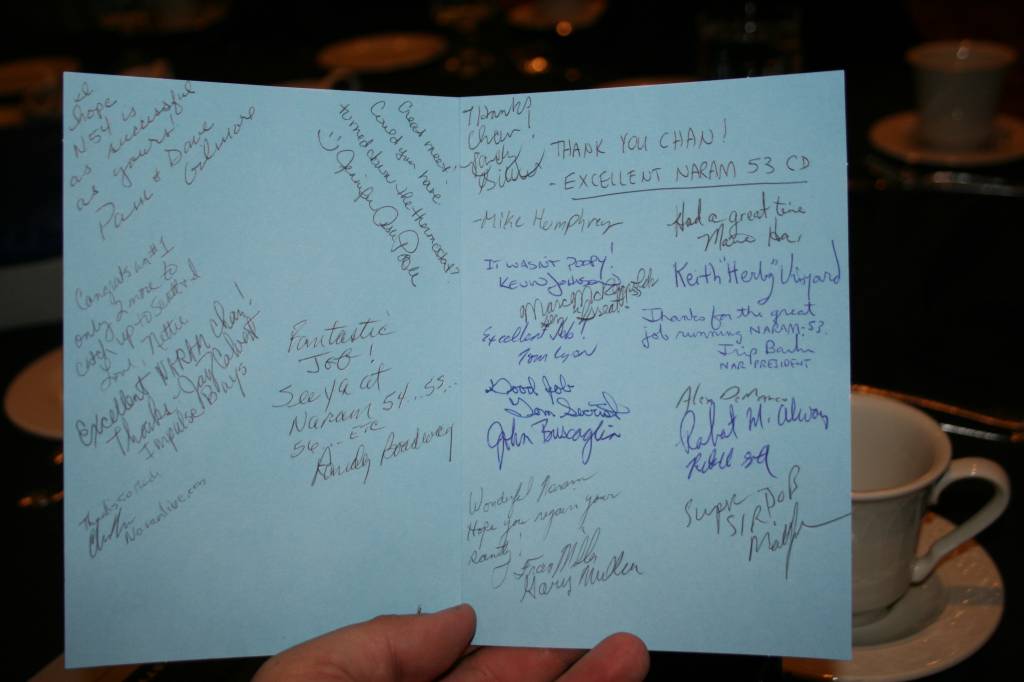 I
hope
N54 is
as successful
as yours!
Pam & Dave
Gilmore
Great meet!
Could you have
turned down the thermostat?
Jennifer Ash Poole
Congrats on #1
only 2 more to
catch up to Seattle
Love, Nattie
Excellent NARAM Chan!
Thanks - Jay Calvert
Impulse Buys
Fantastic
JOB!
See ya at
Naram 54...55...
56... ETC
Randy Boadway
Thanks so much
Naramlive.com
Thanks
Chan!
Randy
THANK YOU CHAN!
- EXCELLENT NARAM 53 CD
-Mike Humphrey
Had a great time
IT WASN'T POOPY!
KEVIN JOHNSON
Marc McReynolds
Keith "Herby" Vinyard
Excellent Job!
Tom Lyon
Thanks for the great
job running NARAM-53.
Trip Barber
NAR PRESIDENT
Good job
Tom Secrist
John Buscaglia
Robert M. Alway
Wonderful Naram
Hope you regain your
sanity!
Fran Miller
Gary Miller
Super
SIR BOB